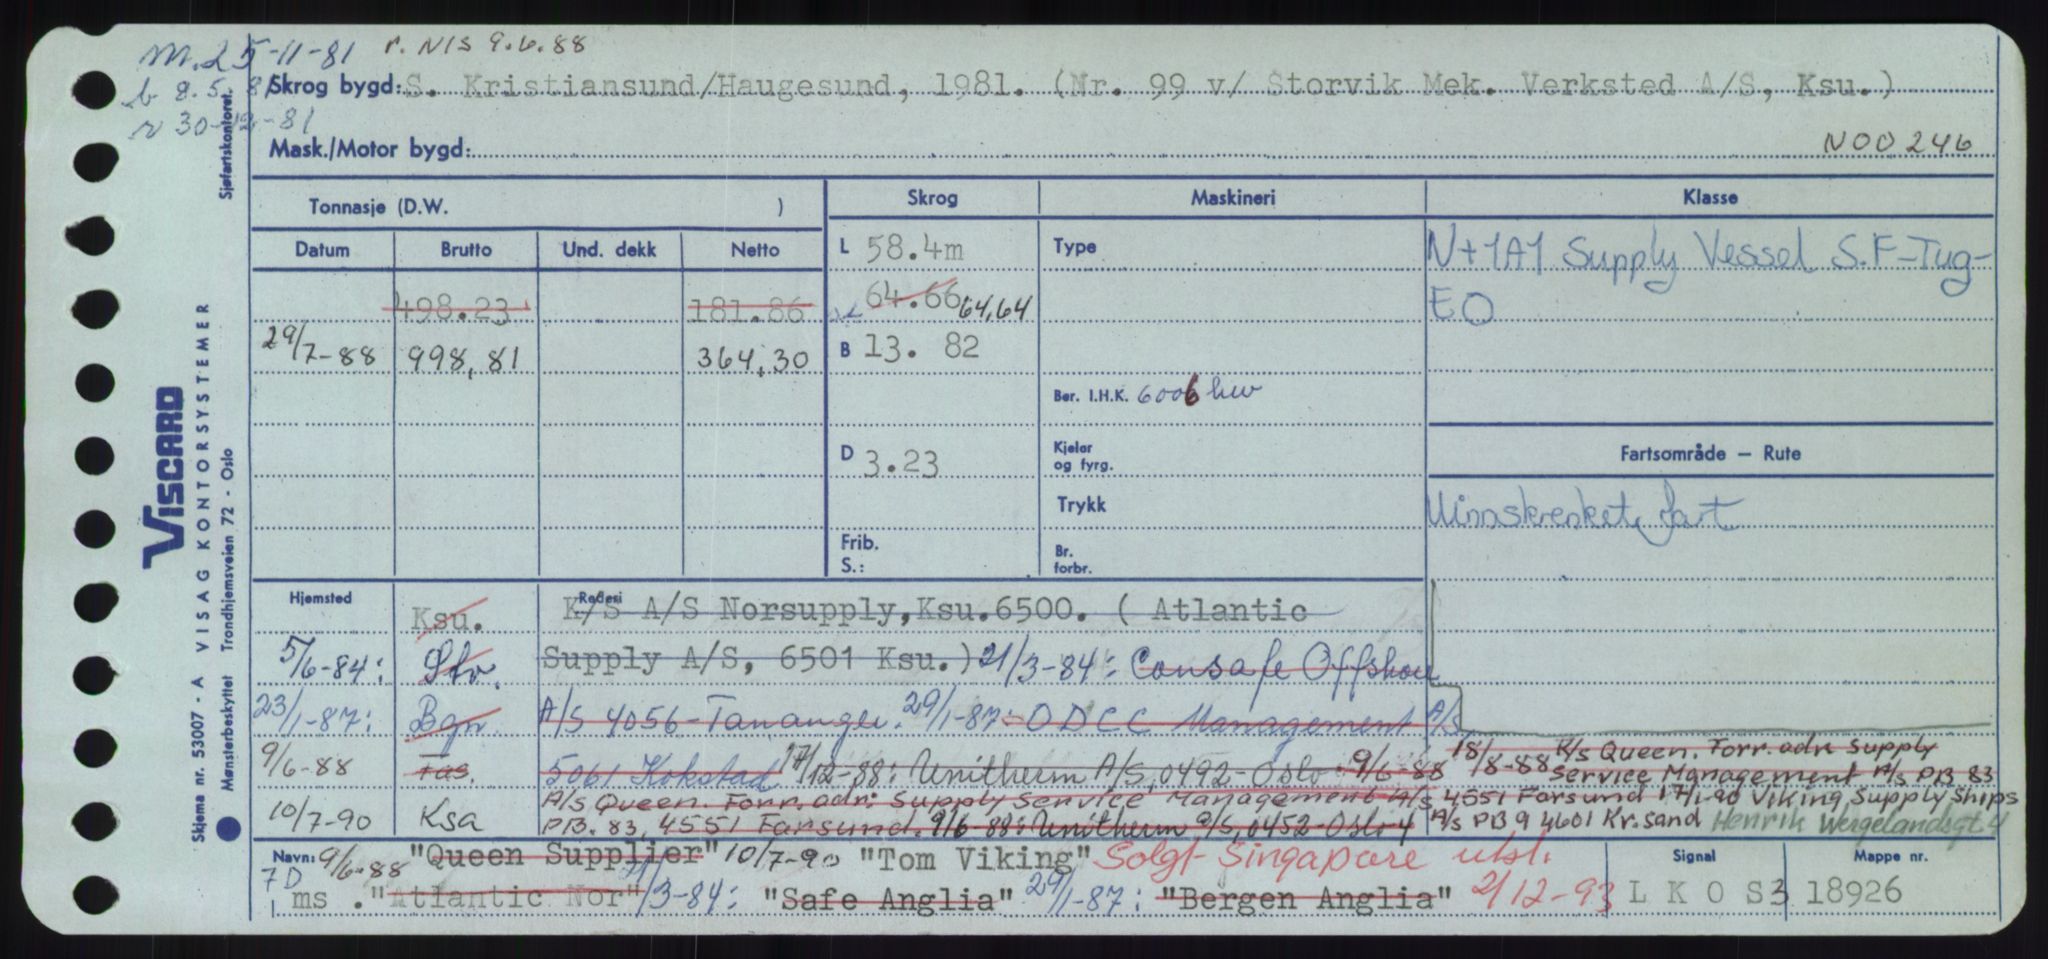 m. 25-11-81 r. NIS 9.6.88
b 8.5.81
r 30-12-81
Skrog bygd: S. Kristiansund/Haugesund, 1981. (Nr. 99 v/ Storvik Mek. Verksted A/S, Ksu.)
Mask./Motor bygd: N00246
Tonnasje (D.W. ) Skrog Maskineri Klasse
Datum Brutto Und. dekk Netto
L 58.4m Type
N+1A1 Supply Vessel S.F-Tug-
EO
498.23 181.86 64.66 64,64
29/7-88 998,81 364,30 B 13. 82
Ber. I.H.K. 6006 kw
Fartsområde — Rute
D 3.23 Kjeler
og fyrg.
Trykk
Uinnskrenket fart
Frib.
S.:
Br.
forbr.
Hjemsted Rederi
Ksu. K/S A/S Norsupply,Ksu.6500. ( Atlantic
5/6-84: Stv. Supply A/S, 6501 Ksu.) 21/3-84: Consafe Offshore
23/1-87: Bgn. A/S 4056-Tananger. 29/1-87: ODCC Management A/S
9/6-88 Fas. 5061 Kokstad 17/12-88: Unitherm A/S, 0492-Oslo 9/6-88
10/7-90 Ksa A/s Queen. Forr. adr: Supply Service Management A/s
PB. 83, 4551 Farsund. 9/6-88: Unitherm a/s, 0452-Oslo 4
18/8-88 K/s Queen. Forr. adr Supply
Service Management A/s PB 83
4551 Farsund 17/1-90 Viking Supply Ships
A/s PB 9 4601 Kr.sand Henrik Wergelandsgt 4
Navn: 9/6-88 "Queen Supplier" 10/7-90 "Tom Viking" Solgt Singapore utsl.
7D
ms ."Atlantic Nor" 21/3-84: "Safe Anglia" 29/1-87: "Bergen Anglia" 2/12-93
Signal
L K O S3
Mappe nr.
18926
VISCARD
VISAG KONTORSYSTEMER
Skjema nr. 53007 - A
Mønsterbeskyttet Trondhjemsveien 72 - Oslo
Sjøfartskontoret.